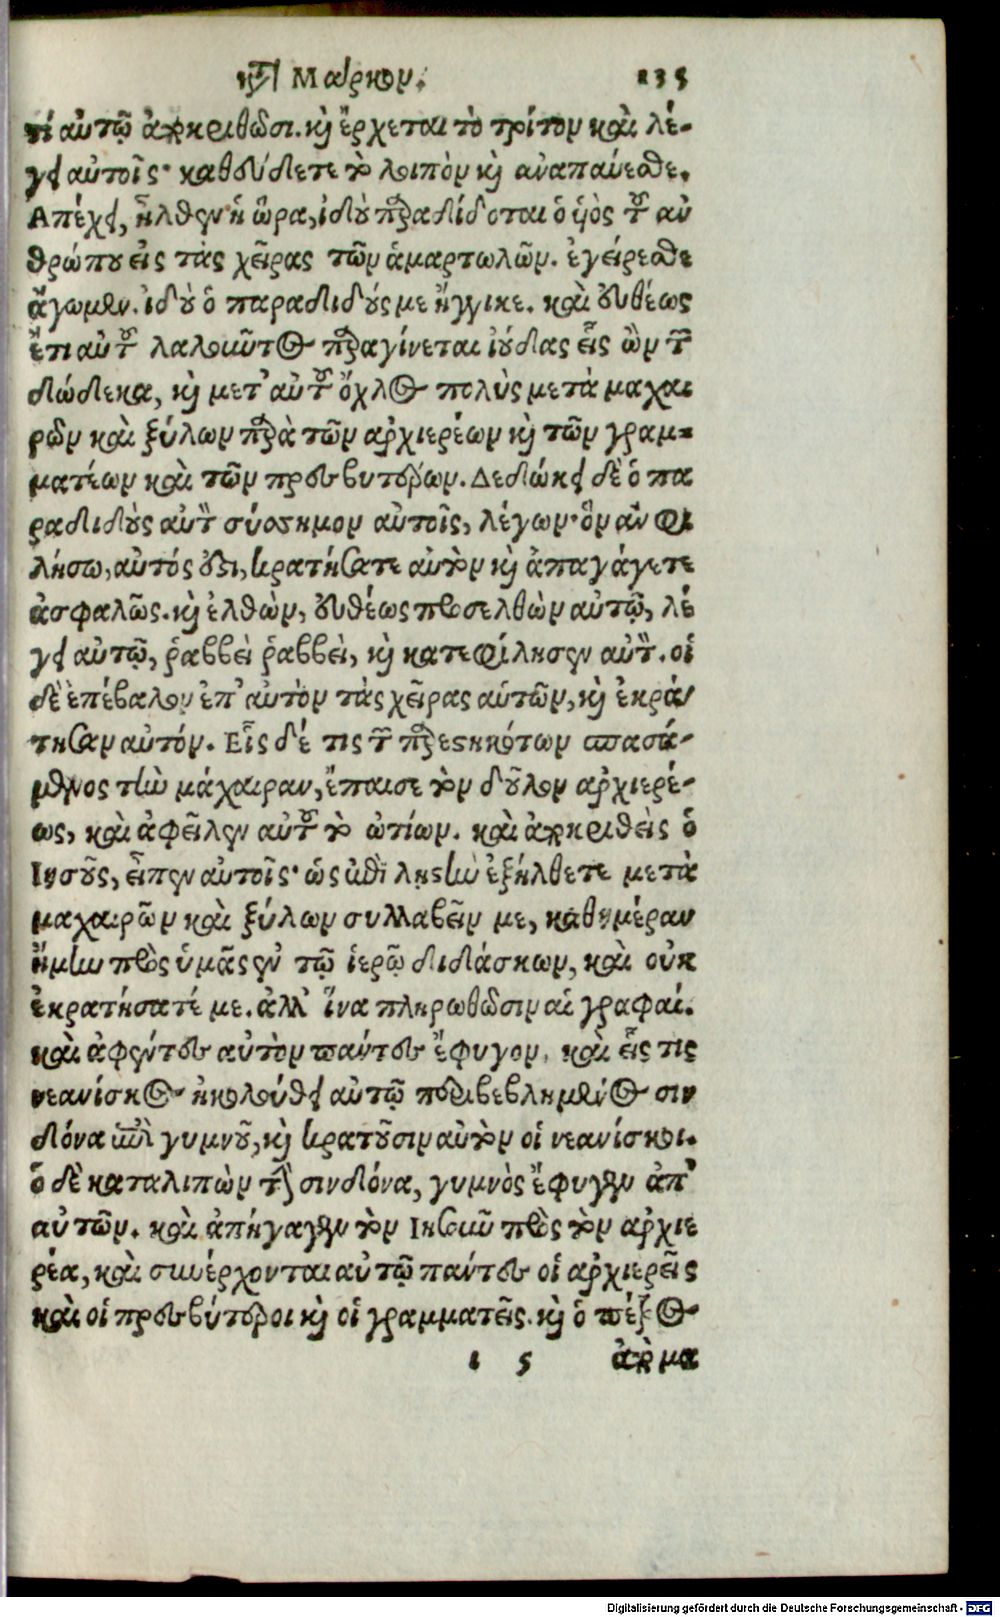 κατὰ Μαίρκον. 135
τί αὐτῷ ἀποκριθῶσι. καὶ ἔρχεται τὸ τρίτον καὶ λέ-
γει αὐτοῖς· καθεύδετε τὸ λοιπὸν καὶ ἀναπαύεσθε.
Ἀπέχει, ἦλθεν ἡ ὥρα, ἰδοὺ παραδίδοται ὁ υἱὸς τοῦ ἀν
θρώπου εἰς τὰς χεῖρας τῶν ἁμαρτωλῶν. ἐγείρεσθε
ἄγωμεν. ἰδοὺ ὁ παραδιδούς με ἤγγικε. καὶ εὐθέως
ἔτι αὐτοῦ λαλοῦντος παραγίνεται ἰούδας εἷς ὢν τῶν
δώδεκα, καὶ μετ' αὐτοῦ ὄχλος πολὺς μετὰ μαχαι
ρῶν καὶ ξύλων παρὰ τῶν ἀρχιερέων καὶ τῶν γραμ-
ματέων καὶ τῶν πρεσβυτέρων. Δεδώκει δὲ ὁ πα
ραδιδοὺς αὐτὸν σύσσημον αὐτοῖς, λέγων· ὃν ἂν φι
λήσω, αὐτός ἐστι, κρατήσατε αὐτὸν καὶ ἀπαγάγετε
ἀσφαλῶς. καὶ ἐλθὼν, εὐθέως προσελθὼν αὐτῷ, λέ
γει αὐτῷ, ῥαββεὶ ῥαββεὶ, καὶ κατεφίλησεν αὐτόν. οἱ
δὲ ἐπέβαλον ἐπ' αὐτὸν τὰς χεῖρας αὑτῶν, καὶ ἐκρά
τησαν αὐτόν. Εἷς δέ τις τῶν παρεστηκότων σπασά-
μενος τὴν μάχαιραν, ἔπαισε τὸν δοῦλον ἀρχιερέ-
ως, καὶ ἀφεῖλεν αὐτοῦ τὸ ὠτίων. καὶ ἀποκριθεὶς ὁ
Ἰησοῦς, εἶπεν αὐτοῖς· ὡς ἐπὶ λῃστὴν ἐξήλθετε μετὰ
μαχαιρῶν καὶ ξύλων συλλαβεῖν με, καθημέραν
ἤμην πρὸς ὑμᾶς ἐν τῷ ἱερῷ διδάσκων, καὶ οὐκ
ἐκρατήσατέ με. ἀλλ' ἵνα πληρωθῶσιν αἱ γραφαί.
καὶ ἀφέντες αὐτὸν πάντες ἔφυγον, καὶ εἷς τις
νεανίσκος ἠκολούθει αὐτῷ περιβεβλημένος σιν
δόνα ἐπὶ γυμνοῦ, καὶ κρατοῦσιν αὐτὸν οἱ νεανίσκοι.
ὁ δὲ καταλιπὼν τὴν σινδόνα, γυμνὸς ἔφυγεν ἀπ'
αὐτῶν. καὶ ἀπήγαγον τὸν Ἰησοῦν πρὸς τὸν ἀρχιε
ρέα, καὶ συνέρχονται αὐτῷ πάντες οἱ ἀρχιερεῖς
καὶ οἱ πρεσβύτεροι καὶ οἱ γραμματεῖς. καὶ ὁ πέτρος
ι 5 ἀπὸ μα
Digitalisierung gefördert durch die Deutsche Forschungsgemeinschaft - DFG